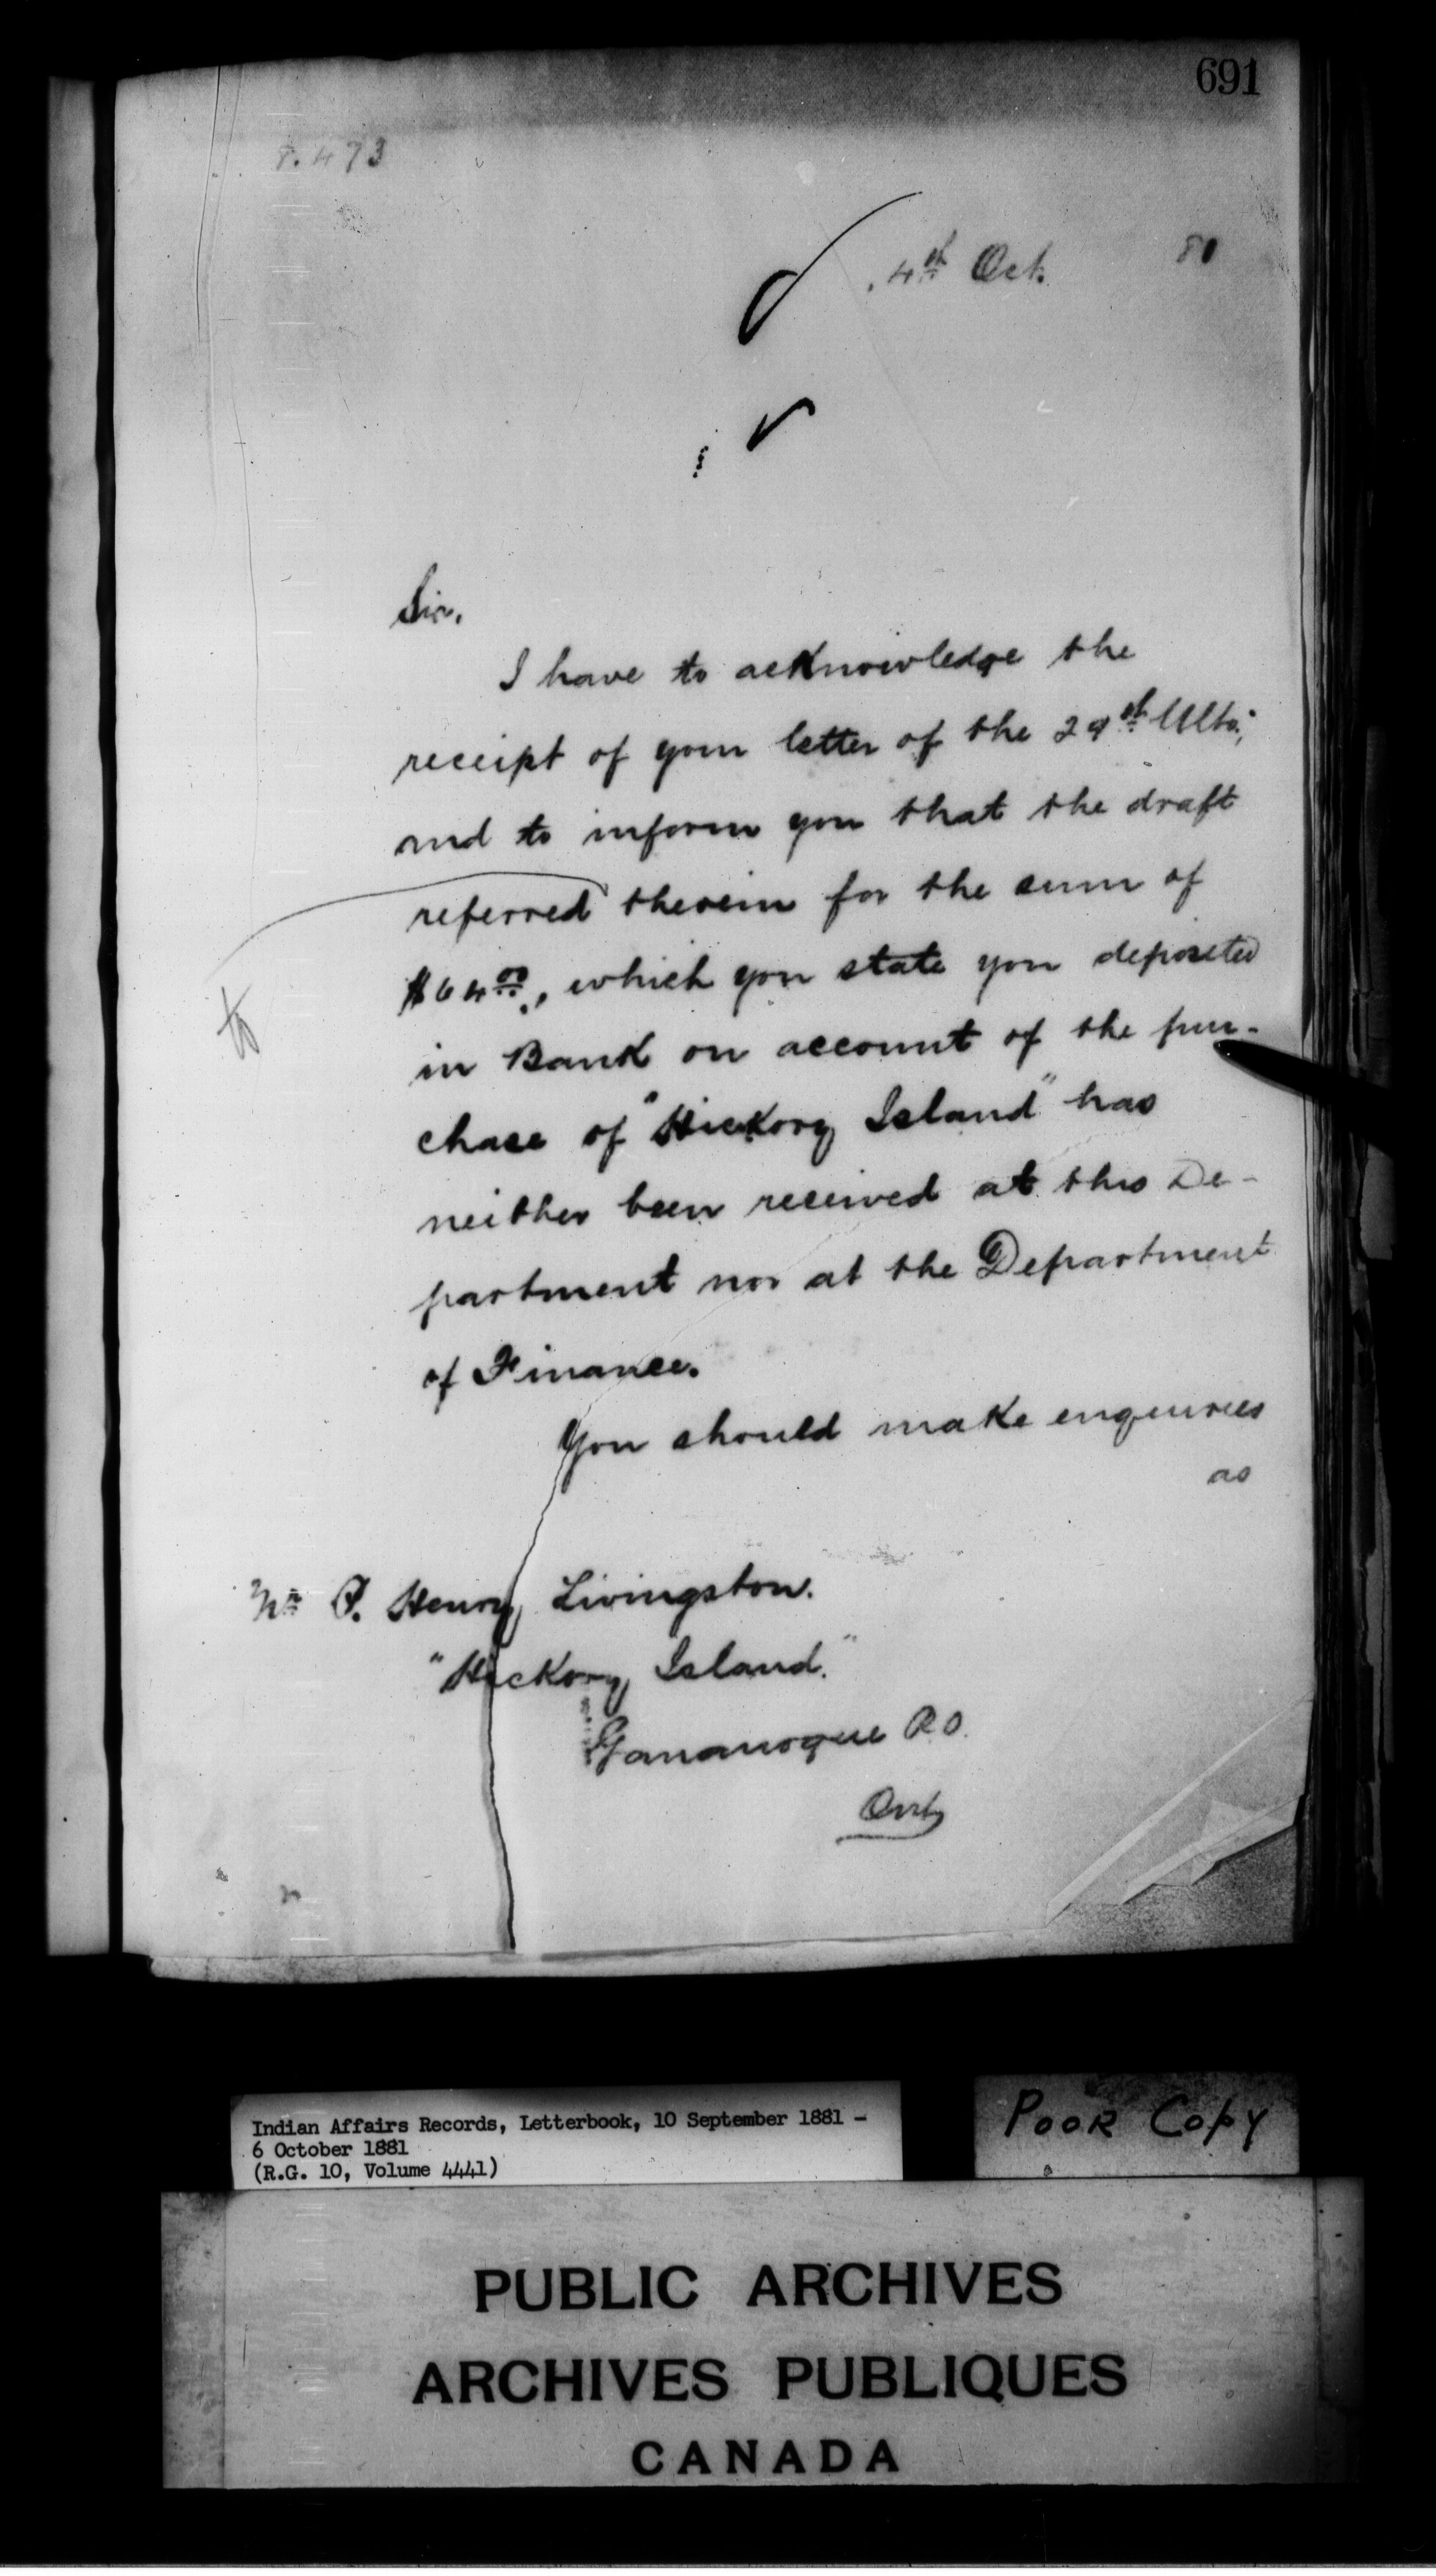 691
P. 473
4th Oct. 81
Sir,
I have to acknowledge the
receipt of your letter of the 29th Ulto;
and to inform you that the draft
referred therein for the sum of
to
$64.00, which you state you deposited
in Bank on account of the pur-
chase of "Hickory Island" has
neither been received at this De-
partment nor at the Department
of Finance.
You should make enquiries
as
Mr P. Henry Livingston.
"Hickory Island."
Gananoque P.O.
Ont
Indian Affairs Records, Letterbook, 10 September 1881 -
6 October 1881
(R.G. 10, Volume 4441)
POOR COPY
PUBLIC ARCHIVES
ARCHIVES PUBLIQUES
CANADA